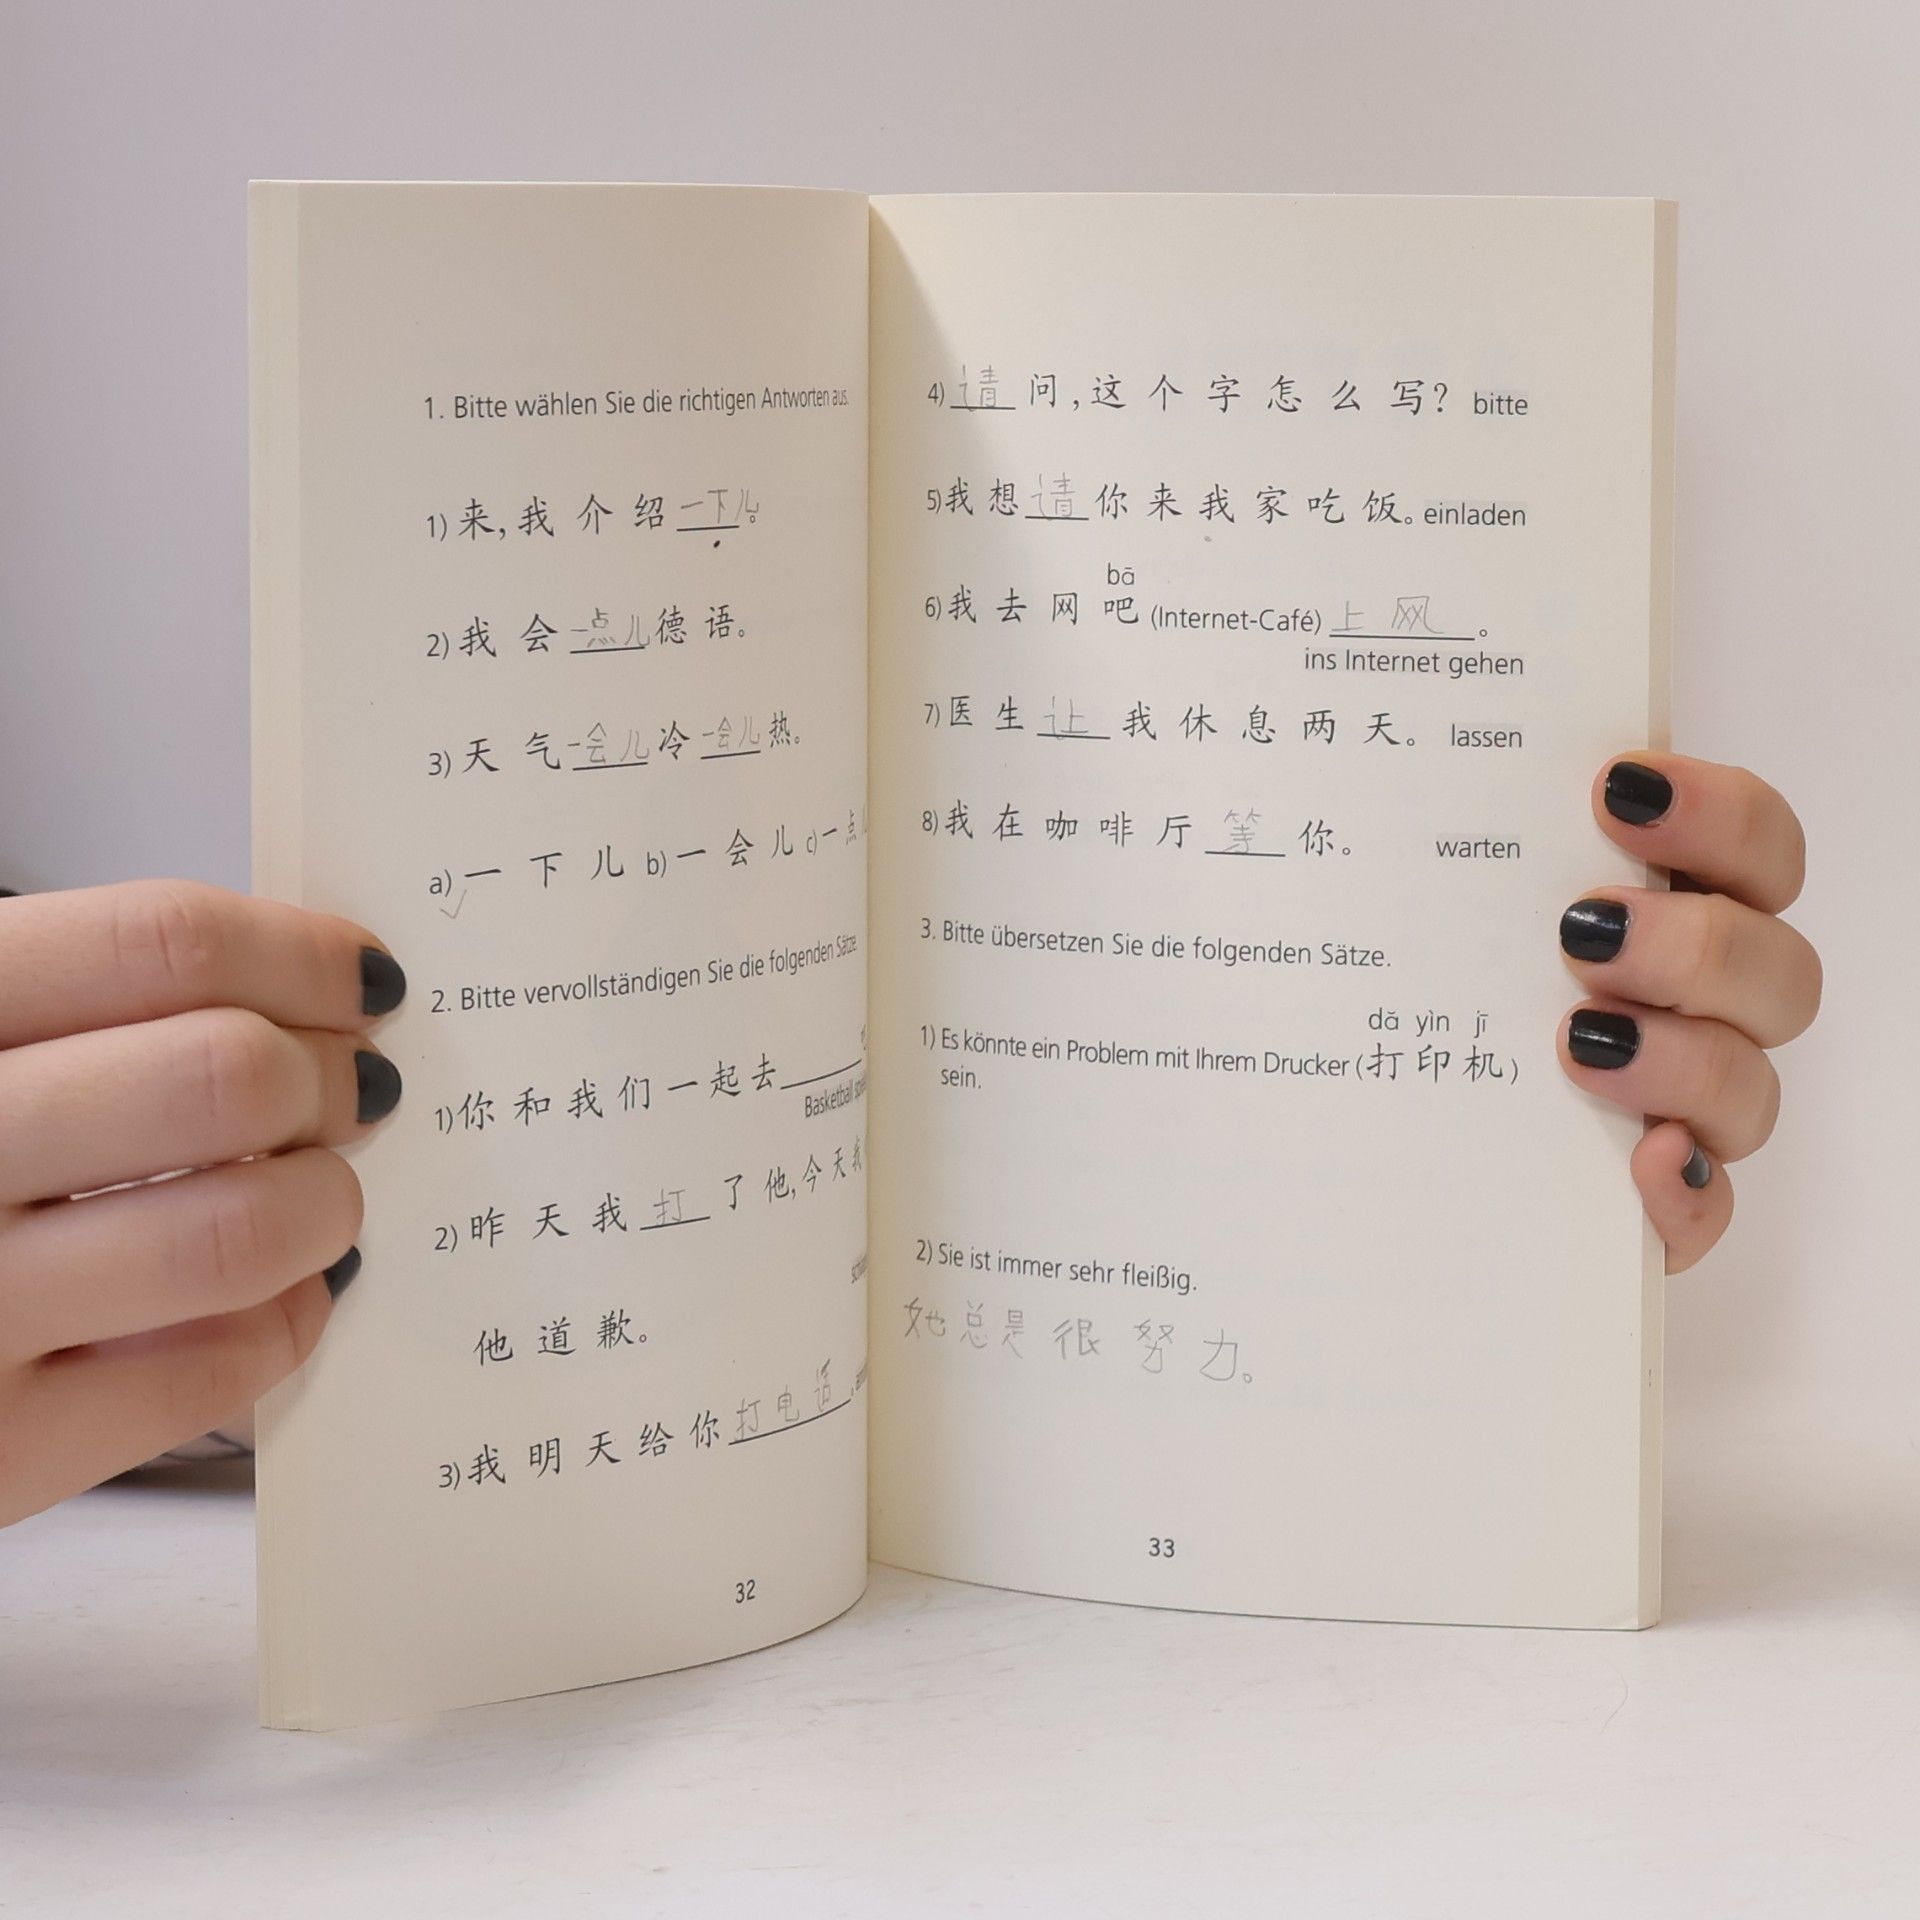 1. Bitte wählen Sie die richtigen Antworten aus.
1) 来,我介绍一下儿。
2) 我会一点儿德语。
3) 天气一会儿冷一会儿热。
a) 一下儿 b) 一会儿 c) 一点儿
2. Bitte vervollständigen Sie die folgenden Sätze.
1) 你和我们一起去
Basketball
2) 昨天我打了他,今天我
他道歉。
3) 我明天给你打电话。
32
4) 请问,这个字怎么写? bitte
5) 我想请你来我家吃饭。 einladen
bā
6) 我去网吧 (Internet-Café) 上网。
ins Internet gehen
7) 医生让我休息两天。 lassen
8) 我在咖啡厅等你。 warten
3. Bitte übersetzen Sie die folgenden Sätze.
dǎ yìn jī
1) Es könnte ein Problem mit Ihrem Drucker (打印机)
sein.
2) Sie ist immer sehr fleißig.
她总是很努力。
33